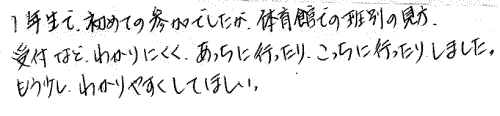 1年生で、初めての参加でしたが、体育館での班別の見方、
受付など、わかりにくく、あっちに行ったり、こっちに行ったりしました。
もう少し、わかりやすくしてほしい。